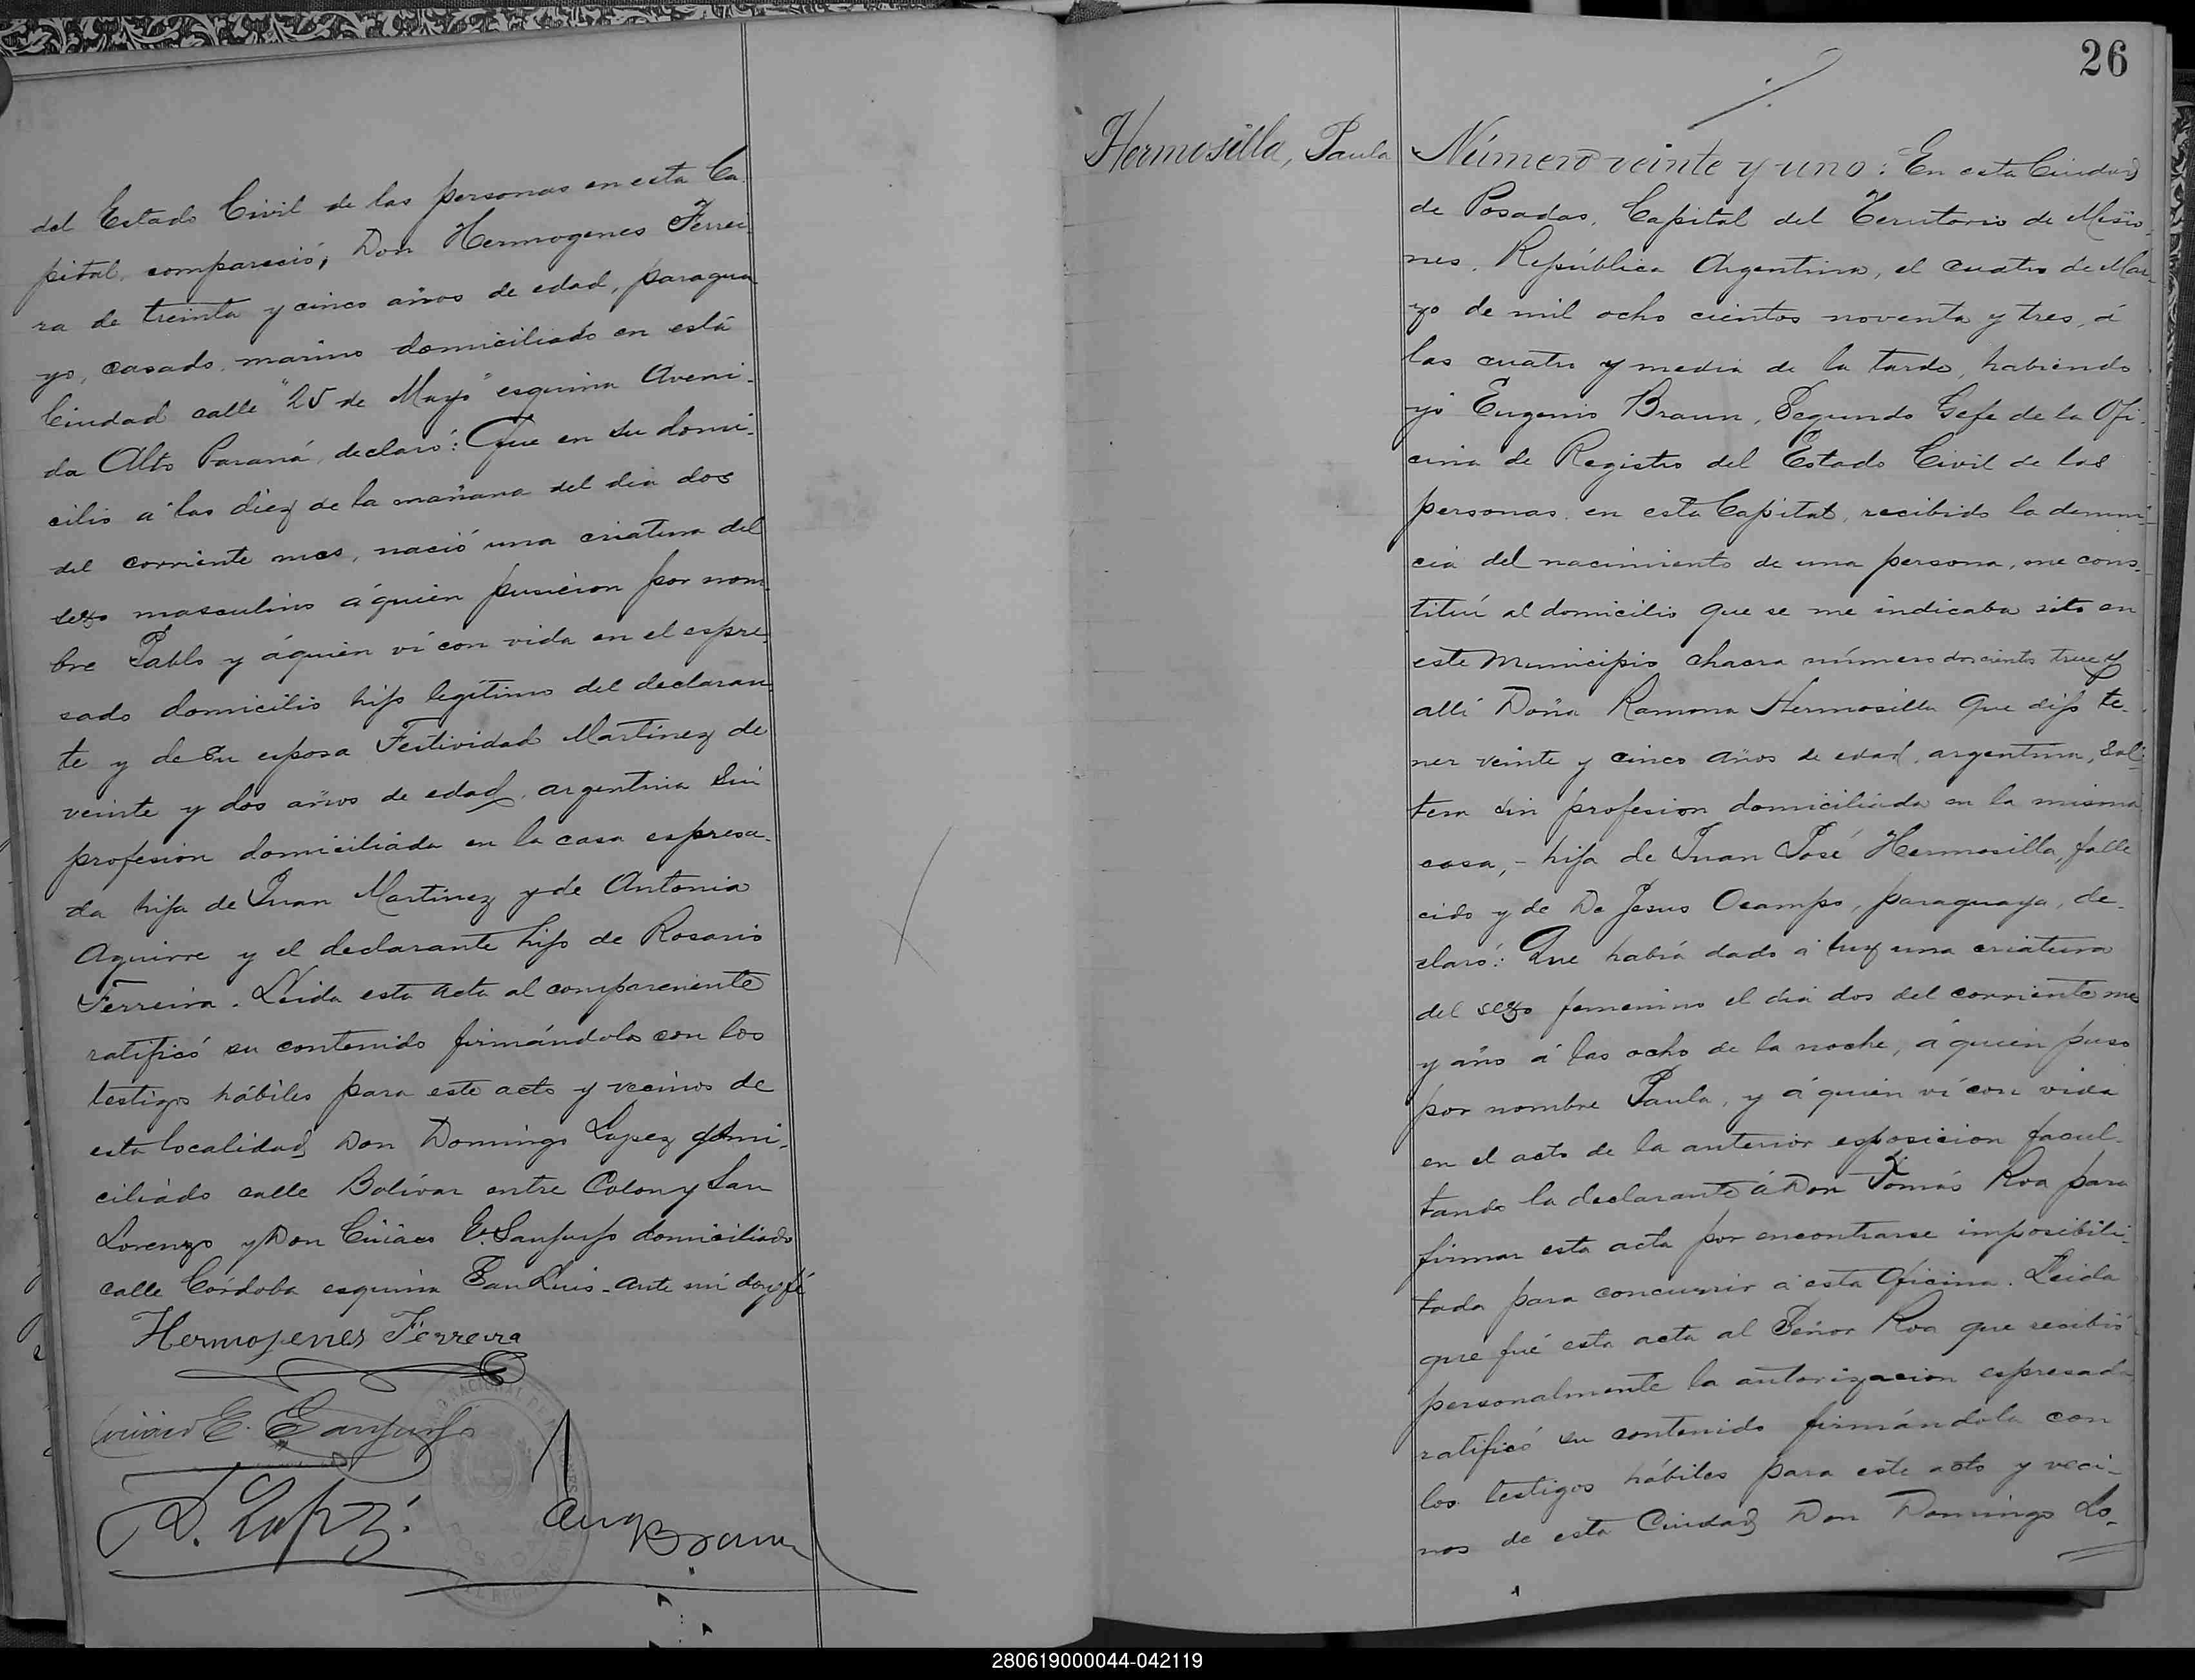 del Estado Civil de las personas en esta Ca-
pital, compareció, Don Hermogenes Ferrei
ra de treinta y cinco años de edad, paragua
yo, casado, marino domiciliado en está
Ciudad calle "25 de Mayo" esquina Aveni-
da Alto Paraná, declaró: Que en su domi-
cilio a las diez de la mañana del dia dos
del corriente mes, nació una criatura del
sexo masculino á quien pusieron por nom
bre Pablo y á quien ví con vida en el espre-
sado domicilio hijo legítimo del declaran
te y de su esposa Festividad Martinez de
veinte y dos años de edad, argentina sin
profesion domiciliada en la casa espresa-
da hija de Juan Martinez y de Antonia
Aguirre y el declarante hijo de Rosario
Ferreira. Leida esta acta al compareciente
ratificó su contenido firmándola con los
testigos hábiles para este acto y vecinos de
esta localidad Don Domingo Lopez domi-
ciliado calle Bolívar entre Colon y San
Lorenzo y Don Ciriaco E. Sanjurjo domiciliado
calle Córdoba esquina San Luis - ante mi doy fé
Hermojenes Ferreira
Ciriaco E. Sanjurjo
D. Lopez
Eug Braun
26
Hermosilla, Paula
Número veinte y uno: En esta Ciudad
de Posadas, Capital del Territorio de Misio-
nes, República Argentina, el cuatro de Ma-
yo de mil ocho cientos noventa y tres, á
las cuatro y media de la tarde, habiendo
yó Eugenio Braun, Segundo Gefe de la Ofi-
cina de Registro del Estado Civil de las
personas en esta Capital, recibido la denun-
cia del nacimiento de una persona, me cons-
tituí al domicilio que se me indicaba sito en
este Municipio chacra número doscientos trece y
allí Doña Ramona Hermosilla que dijo te-
ner veinte y cinco años de edad, argentina, sol-
tera sin profesion domiciliada en la misma
casa, - hija de Juan José Hermosilla, falle
cido y de Da Jesus Ocampo, paraguaya, de-
claró: Que habia dado a luz una criatura
del sexo femenino el dia dos del corriente mes
y año á las ocho de la noche, á quien puso
por nombre Paula, y á quien ví con vida
en el acto de la anterior esposicion facul-
tando la declarante á Don Tomás Roa para
firmar esta acta por encontrarse imposibili-
tada para concurrir á esta Oficina. Leida
que fué esta acta al Señor Roa que recibió
personalmente la autorizacion espresada
ratificó su contenido firmándola con
los testigos hábiles para este acto y veci-
nos de esta Ciudad Don Domingo Lo-
280619000044-042119